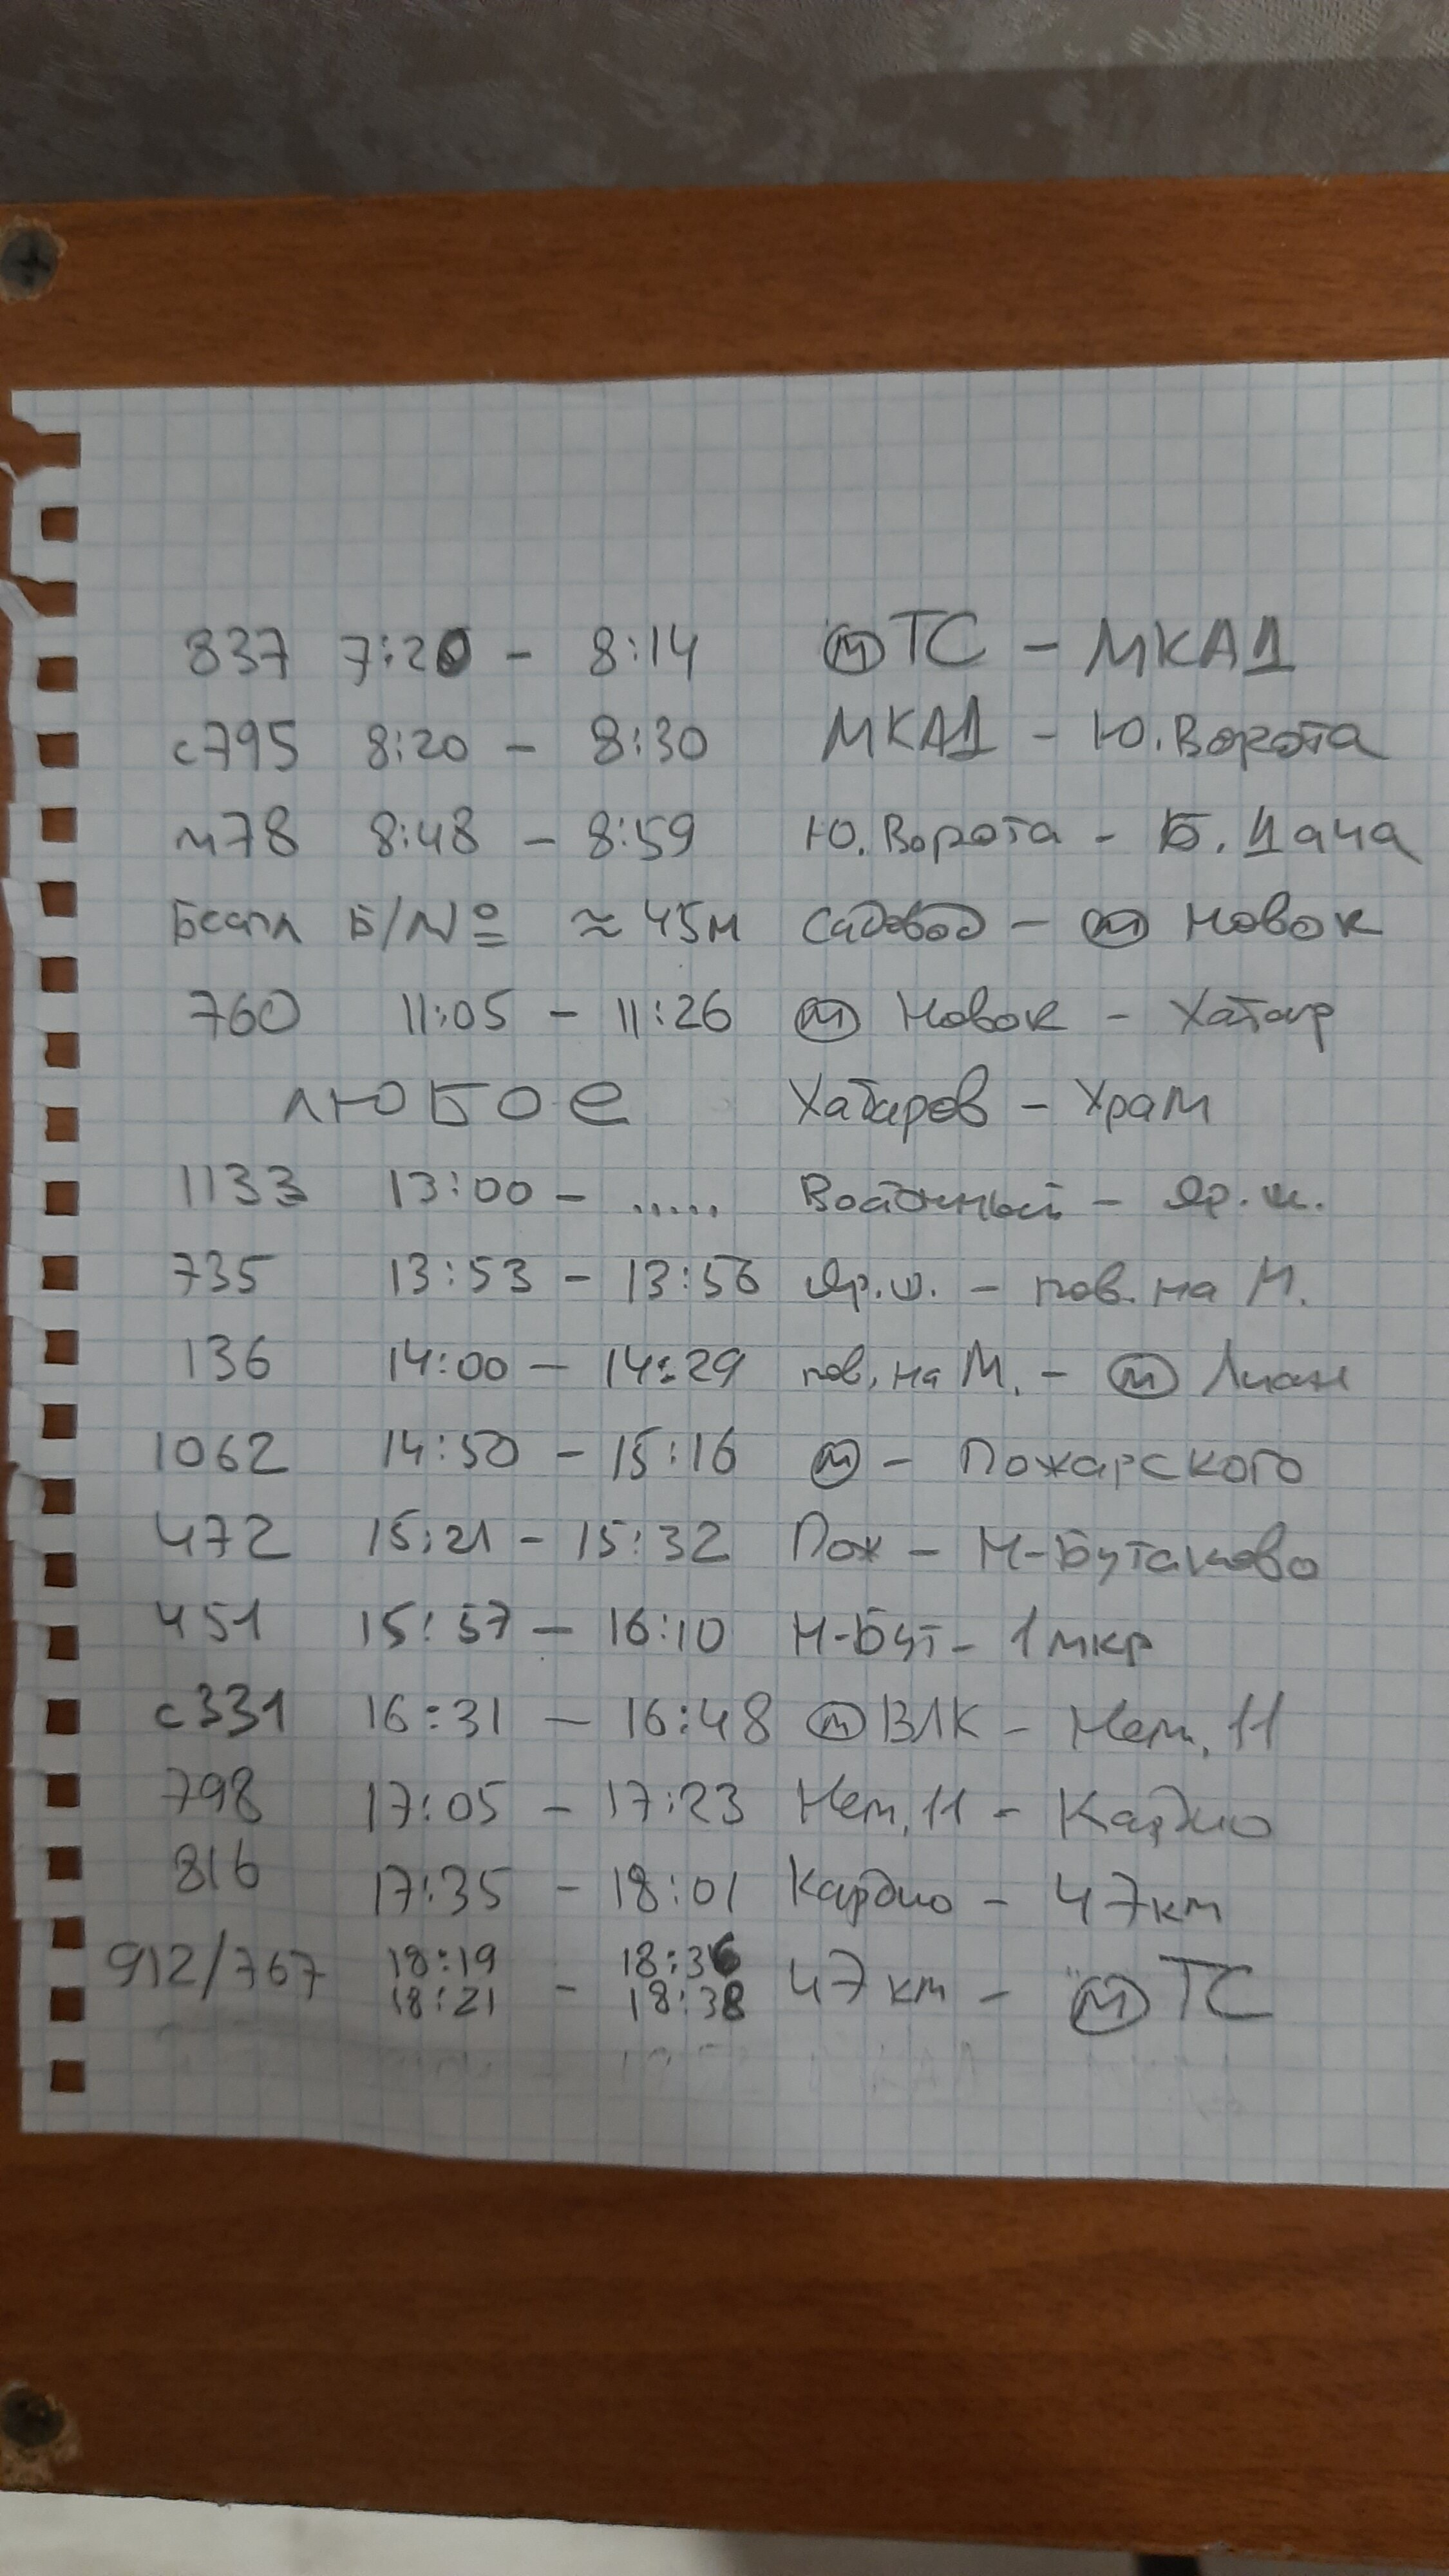 837 7:20 - 8:14 М ТС - МКАД
с795 8:20 - 8:30 МКАД - Ю. Ворота
м78 8:48 - 8:59 Ю. Ворота - Б. Дача
Беспл Б/№ ≈ 45м Садовод - М Новок
760 11:05 - 11:26 М Новок - Хабар
ЛЮБОЕ Хабаров - Храм
1133 13:00 - ..... Восточный - Яр. ш.
735 13:53 - 13:56 Яр. ш. - пов. на М.
136 14:00 - 14:29 пов. на М. - М Лиан
1062 14:50 - 15:16 М - Пожарского
472 15:21 - 15:32 Пож - Н-Бутаково
451 15:57 - 16:10 Н-Бут - 1 мкр
с331 16:31 - 16:48 М ВЛК - Нем, 11
798 17:05 - 17:23 Нем, 11 - Кардио
816 17:35 - 18:01 Кардио - 47 км
912/767 18:19 18:21 - 18:36 18:38 47 км - М ТС